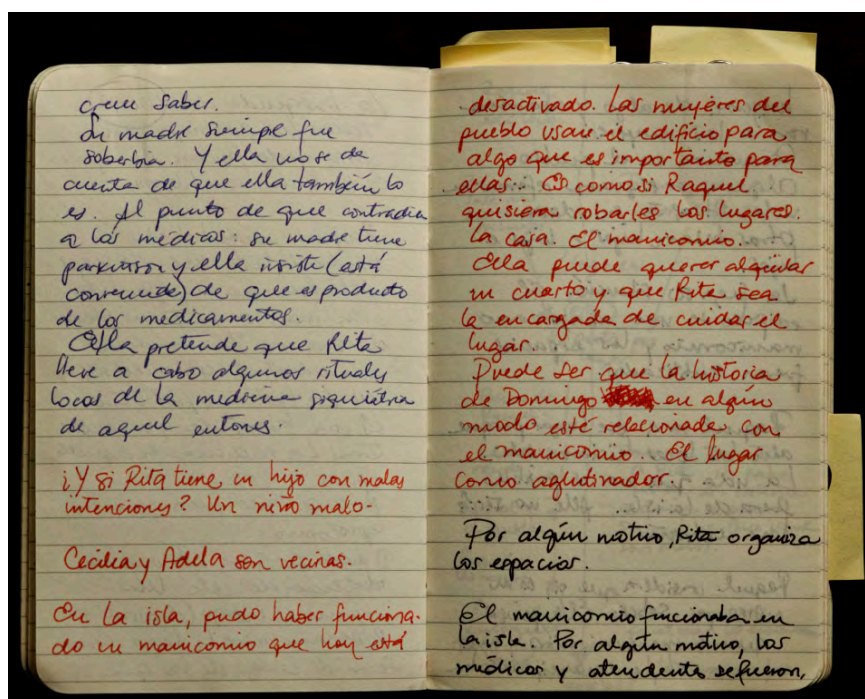 creen saber.
Su madre siempre fue
soberbia. Y ella no se da
cuenta de que ella también lo
es. Al punto de que contradice
a los médicos: su madre tiene
parkinson y ella insiste (está
convencida) de que es producto
de los medicamentos.
Ella pretende que Rita
lleve a cabo algunos rituales
locos de la medicina siquiátrica
de aquel entonces.
¿Y si Rita tiene un hijo con malas
intenciones? Un niño malo-
Cecilia y Adela son vecinas.
En la isla, pudo haber funciona-
do un manicomio que hoy está
desactivado. Las mujeres del
pueblo usan el edificio para
algo que es importante para
ellas. Es como si Raquel
quisiera robarles los lugares.
La casa. El manicomio.
Ella puede querer alquilar
un cuarto y que Rita sea
la encargada de cuidar el
lugar.
Puede ser que la historia
de Domingo en algún
modo esté relacionada con
el manicomio. El lugar
como aglutinador.
Por algún motivo, Rita organiza
los espacios.
El manicomio funcionaba en
la isla. Por algún motivo, los
médicos y atendentes se fueron,